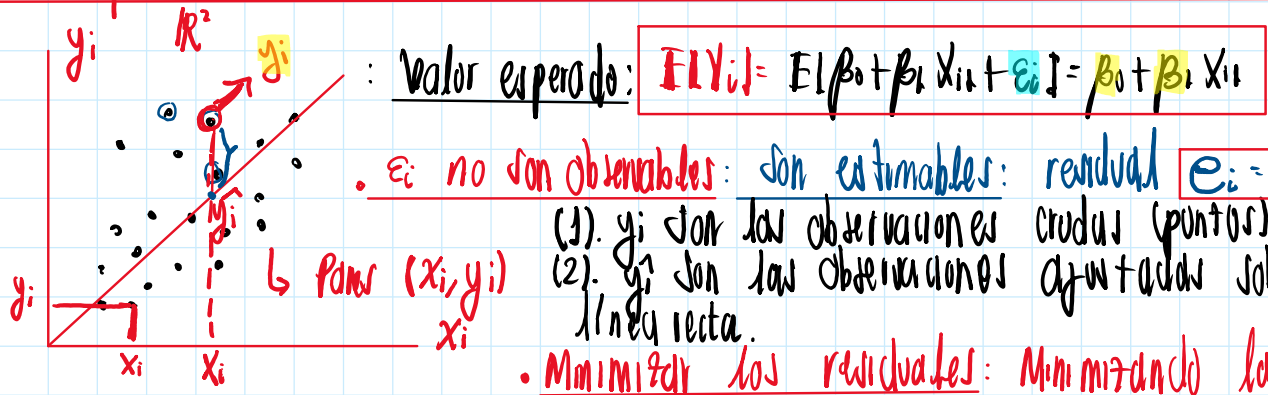 y_i
ℝ²
y_i
: Valor esperado: E[Y_i] = E[β_0 + β_1 X_i1 + ε_i] = β_0 + β_1 X_i1
. ε_i no son observables: son estimables: residual e_i =
(1). y_i son las observaciones crudas (puntos)
ŷ_i
(2). ŷ_i son las observaciones ajustadas so
↳ Pares (x_i, y_i)
línea recta.
y_i
x_i
x_i
X_i
. Minimizar los residuales: Minimizando la